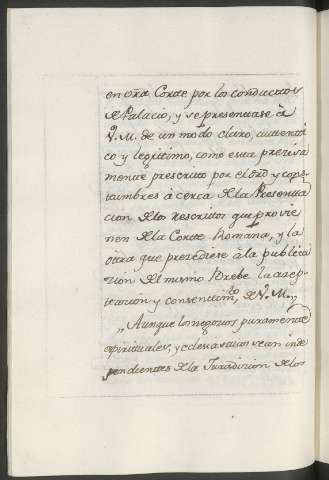 en ōra Corte por los conductos
de Palacio, y se presentase à
V. M. de un modo claro, autenti
co y legitimo, como esta precisa
mente prescrito por el dro y cos-
tumbres à cerca de la Presenta
cion de los rescritos que provie
nen de la Corte Romana, y la
otra que precediese à la publica
zion del mismo Brebe la acep-
tacion y consentim.to de V. M.
„ Aunque los negocios puramente
espirituales, y eclesiasticos sean inde
pendientes de la Jurisdicion de los